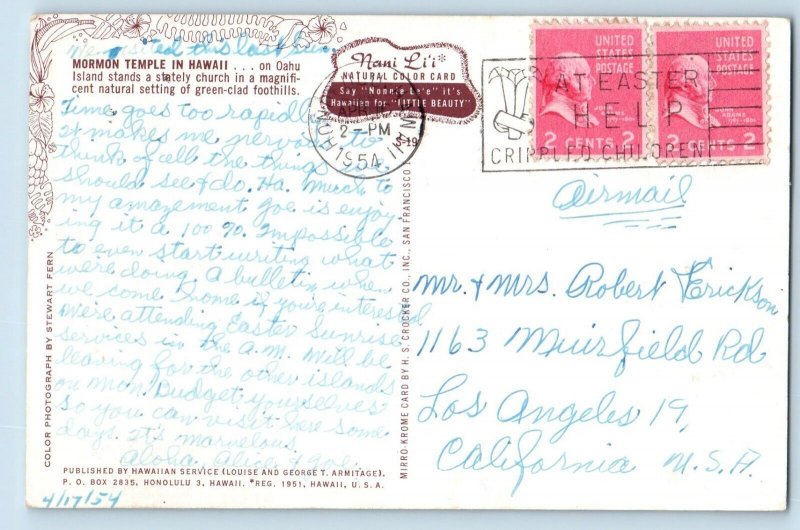 We visited this last
MORMON TEMPLE IN HAWAII . . . on Oahu
Island stands a stately church in a magnifi-
cent natural setting of green-clad foothills.
Time goes too rapidly
it makes me nervous to
think of all the things we
should see & do. Ha. Much to
my amazement Joe is enjoy-
ing it a 100%. Impossible
to even start writing what
we're doing. A bulletin when
we come home if you're interested
We're attending Easter Sunrise
services in the a.m. Will be
leaving for the other islands
on Mon. Budget yourselves
so you can visit here some
day. It's marvelous
Aloha, Alice & Joe.
PUBLISHED BY HAWAIIAN SERVICE (LOUISE AND GEORGE T. ARMITAGE).
P. O. BOX 2835, HONOLULU 3, HAWAII. *REG. 1951, HAWAII, U. S. A.
4/17/54
COLOR PHOTOGRAPH BY STEWART FERN
Nani Li'i*
NATURAL COLOR CARD
Say "Nonnie Lee" it's
Hawaiian for "LITTLE BEAUTY"
S-19
APR
2-PM
1954
MIRRO-KROME CARD BY H. S. CROCKER CO., INC., SAN FRANCISCO
UNITED
STATES
POSTAGE
JOHN
ADAMS
2 CENTS 2
UNITED
STATES
POSTAGE
JOHN
ADAMS
1797-1801
2 CENTS 2
AT EASTER
HELP
CRIPPLED CHILDREN
Airmail
Mr. & Mrs. Robert Erickson
1163 Muirfield Rd
Los Angeles 19,
California U.S.A.